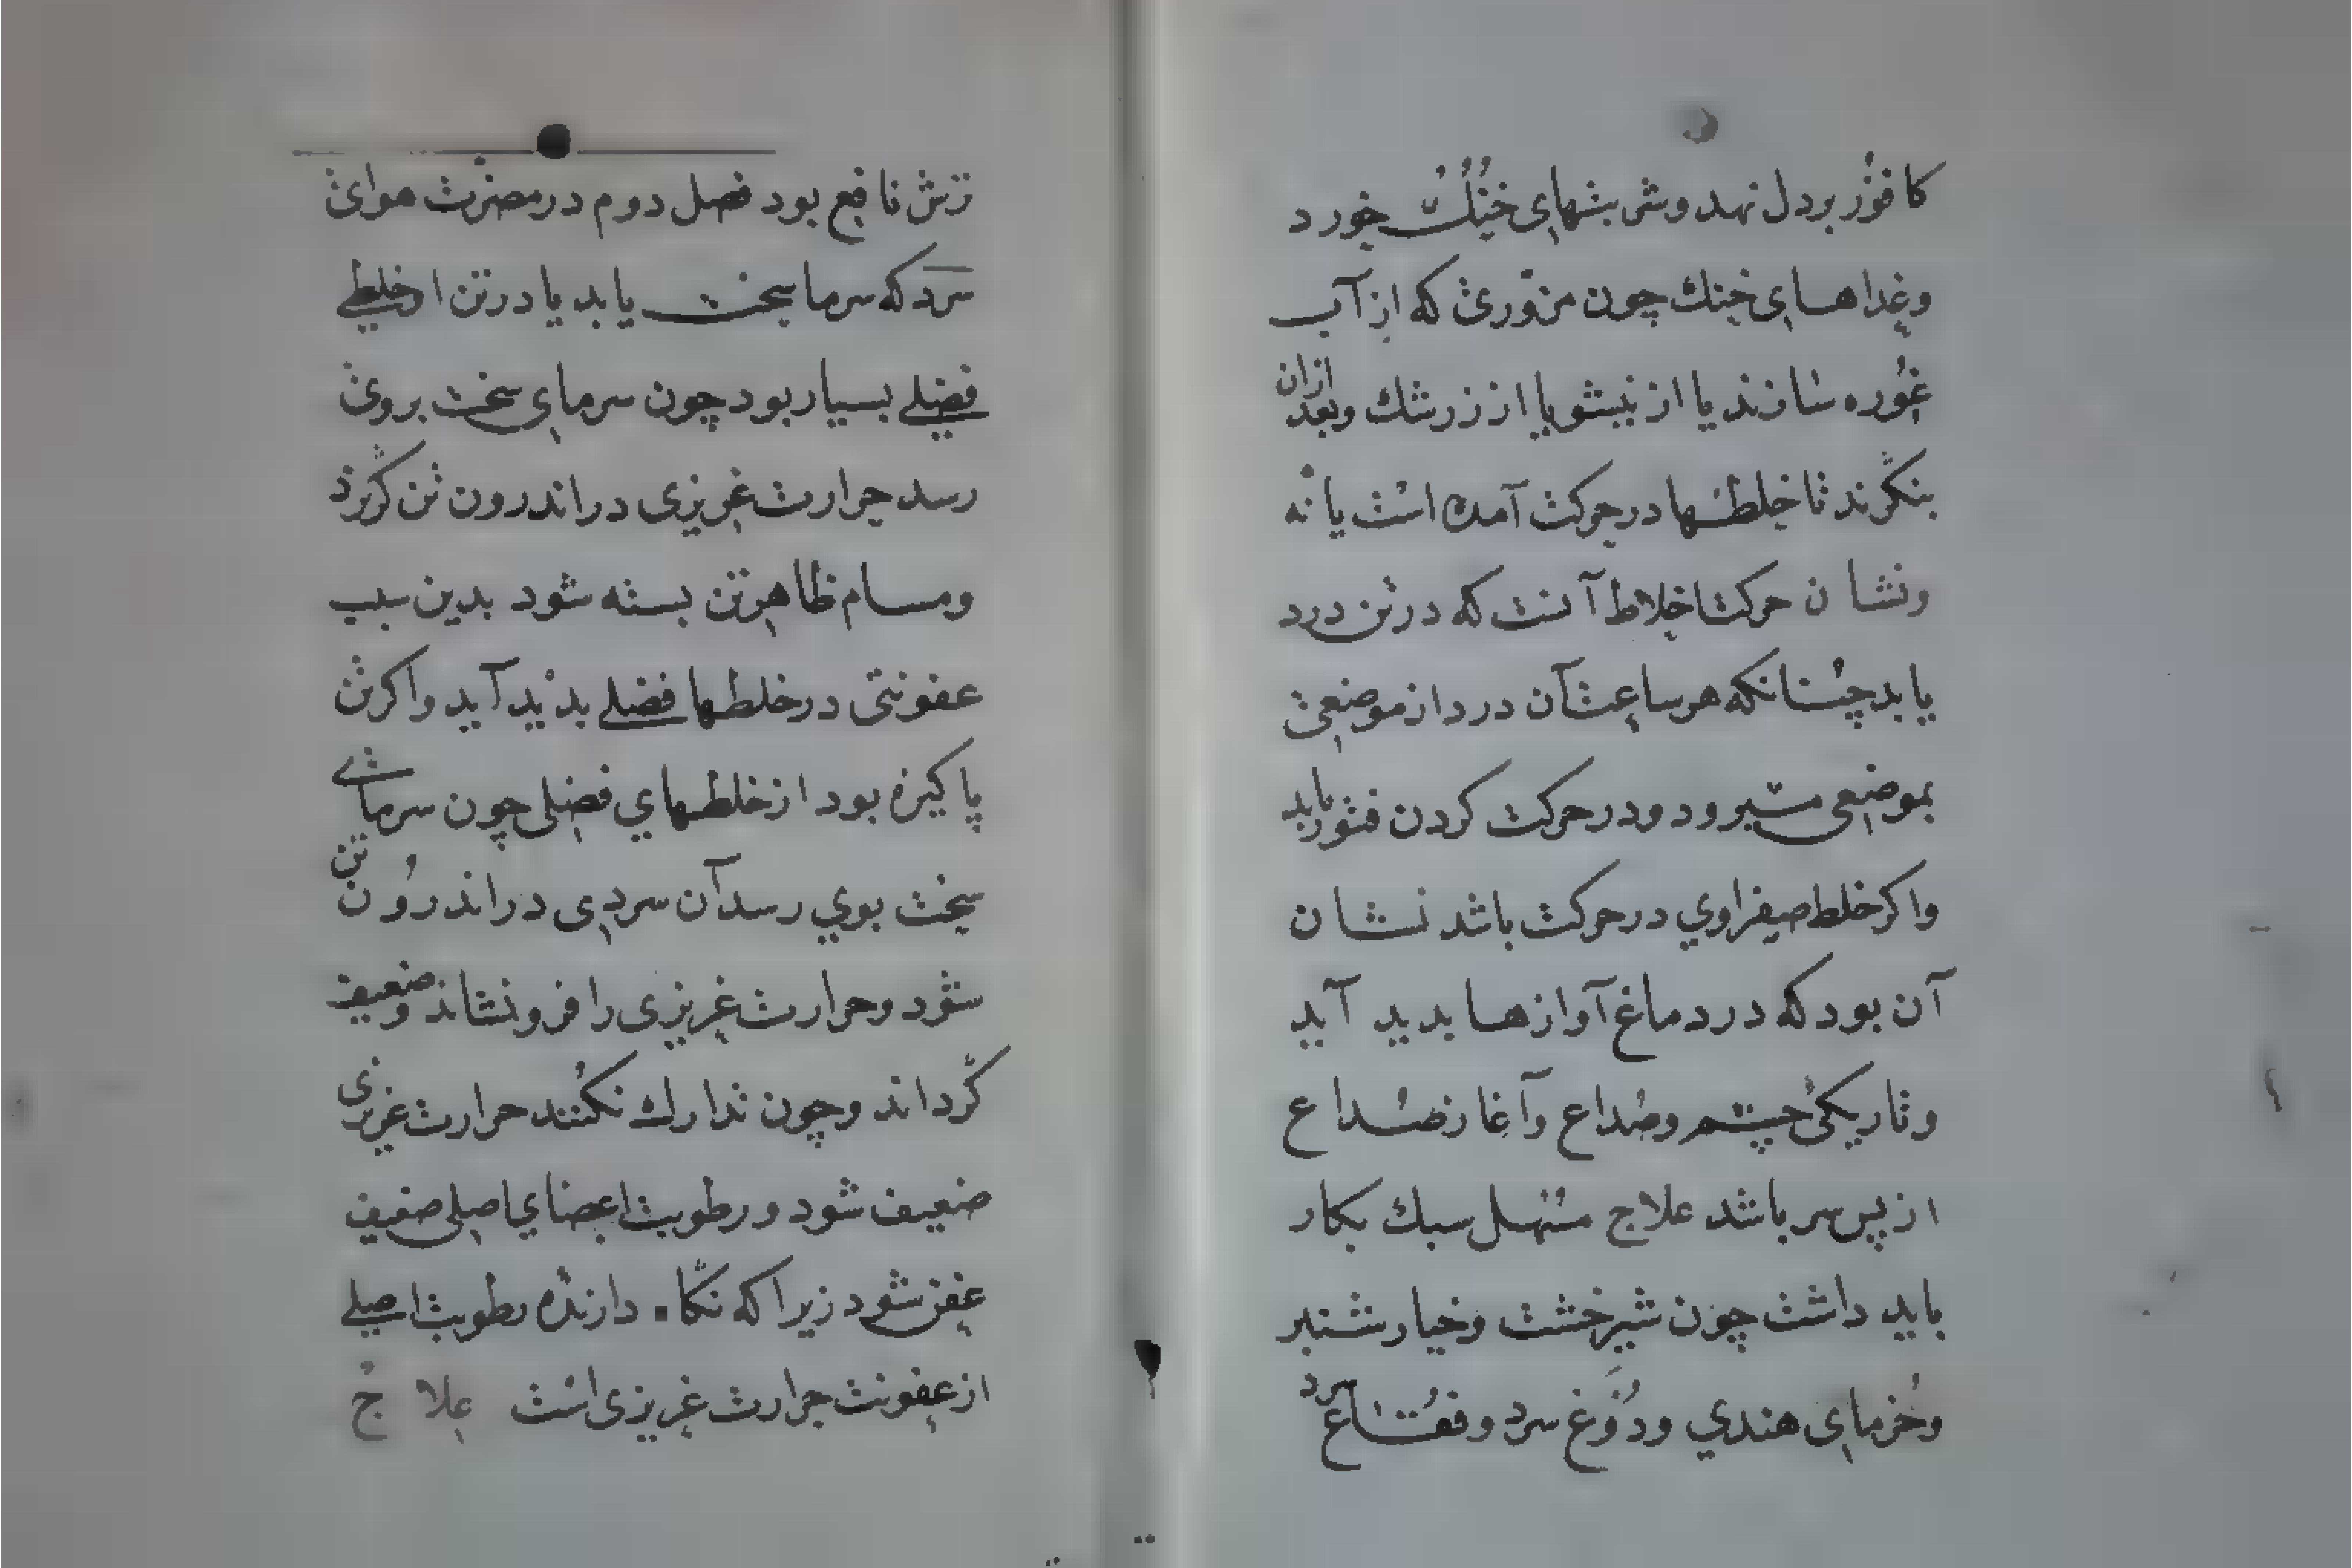 كافور بردل نهد وشربتهای خنك خورد
وغذاهای خنك چون مزوری که از آب
غوره سازند یا از نیشو یا از زرشك وبعد ازان
بنگرند تا خلطها در حرکت آمده است یا نه
ونشان حرکت اخلاط آنست که در تن درد
یابد چنانکه هر ساعت آن درد از موضعی
بموضعی میرود ودر حرکت کردن فتور یابد
واکر خلط صفراوي در حرکت باشد نشان
آن بود که در دماغ آوازها بدید آید
وتاریکی چشم وصداع وآغاز صداع
از پس سر باشد علاج مسهل سبك بکار
باید داشت چون شیرخشت وخیارشنبر
وخرمای هندي ودوغ سرد وفقاع سرد
ترش نافع بود فصل دوم در مضرت هوای
سرد که سرما سخت یابد یا در تن او خلطے
فضلے بسیار بود چون سرمای سخت بروی
رسد حرارت غریزی در اندرون تن گریزد
ومسام ظاهر تن بسته شود بدین سبب
عفونتی در خلطها فضلے بدید آید واکر تن
پاکیزه بود از خلطهاي فضلی چون سرمائے
سخت بوي رسد آن سردی در اندرون تن
شود وحرارت غریزی را فرونشاند وضعیف
گرداند وچون تدارك نکنند حرارت غریزی
ضعیف شود ورطوبت اعضاي اصلی ضعیف
عفن شود زیرا که نگاه دارنده رطوبت اصلے
از عفونت حرارت غریزی است علاج